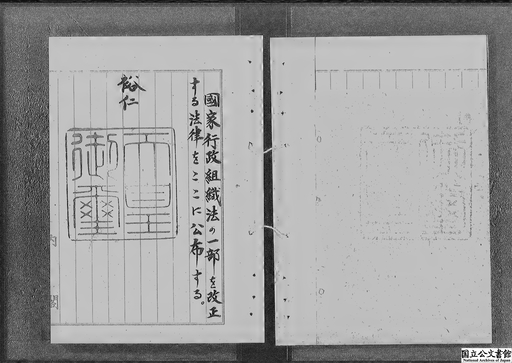 國家行政組織法の一部を改正
する法律をここに公布する。
裕仁
天皇
御璽
国立公文書館
National Archives of Japan